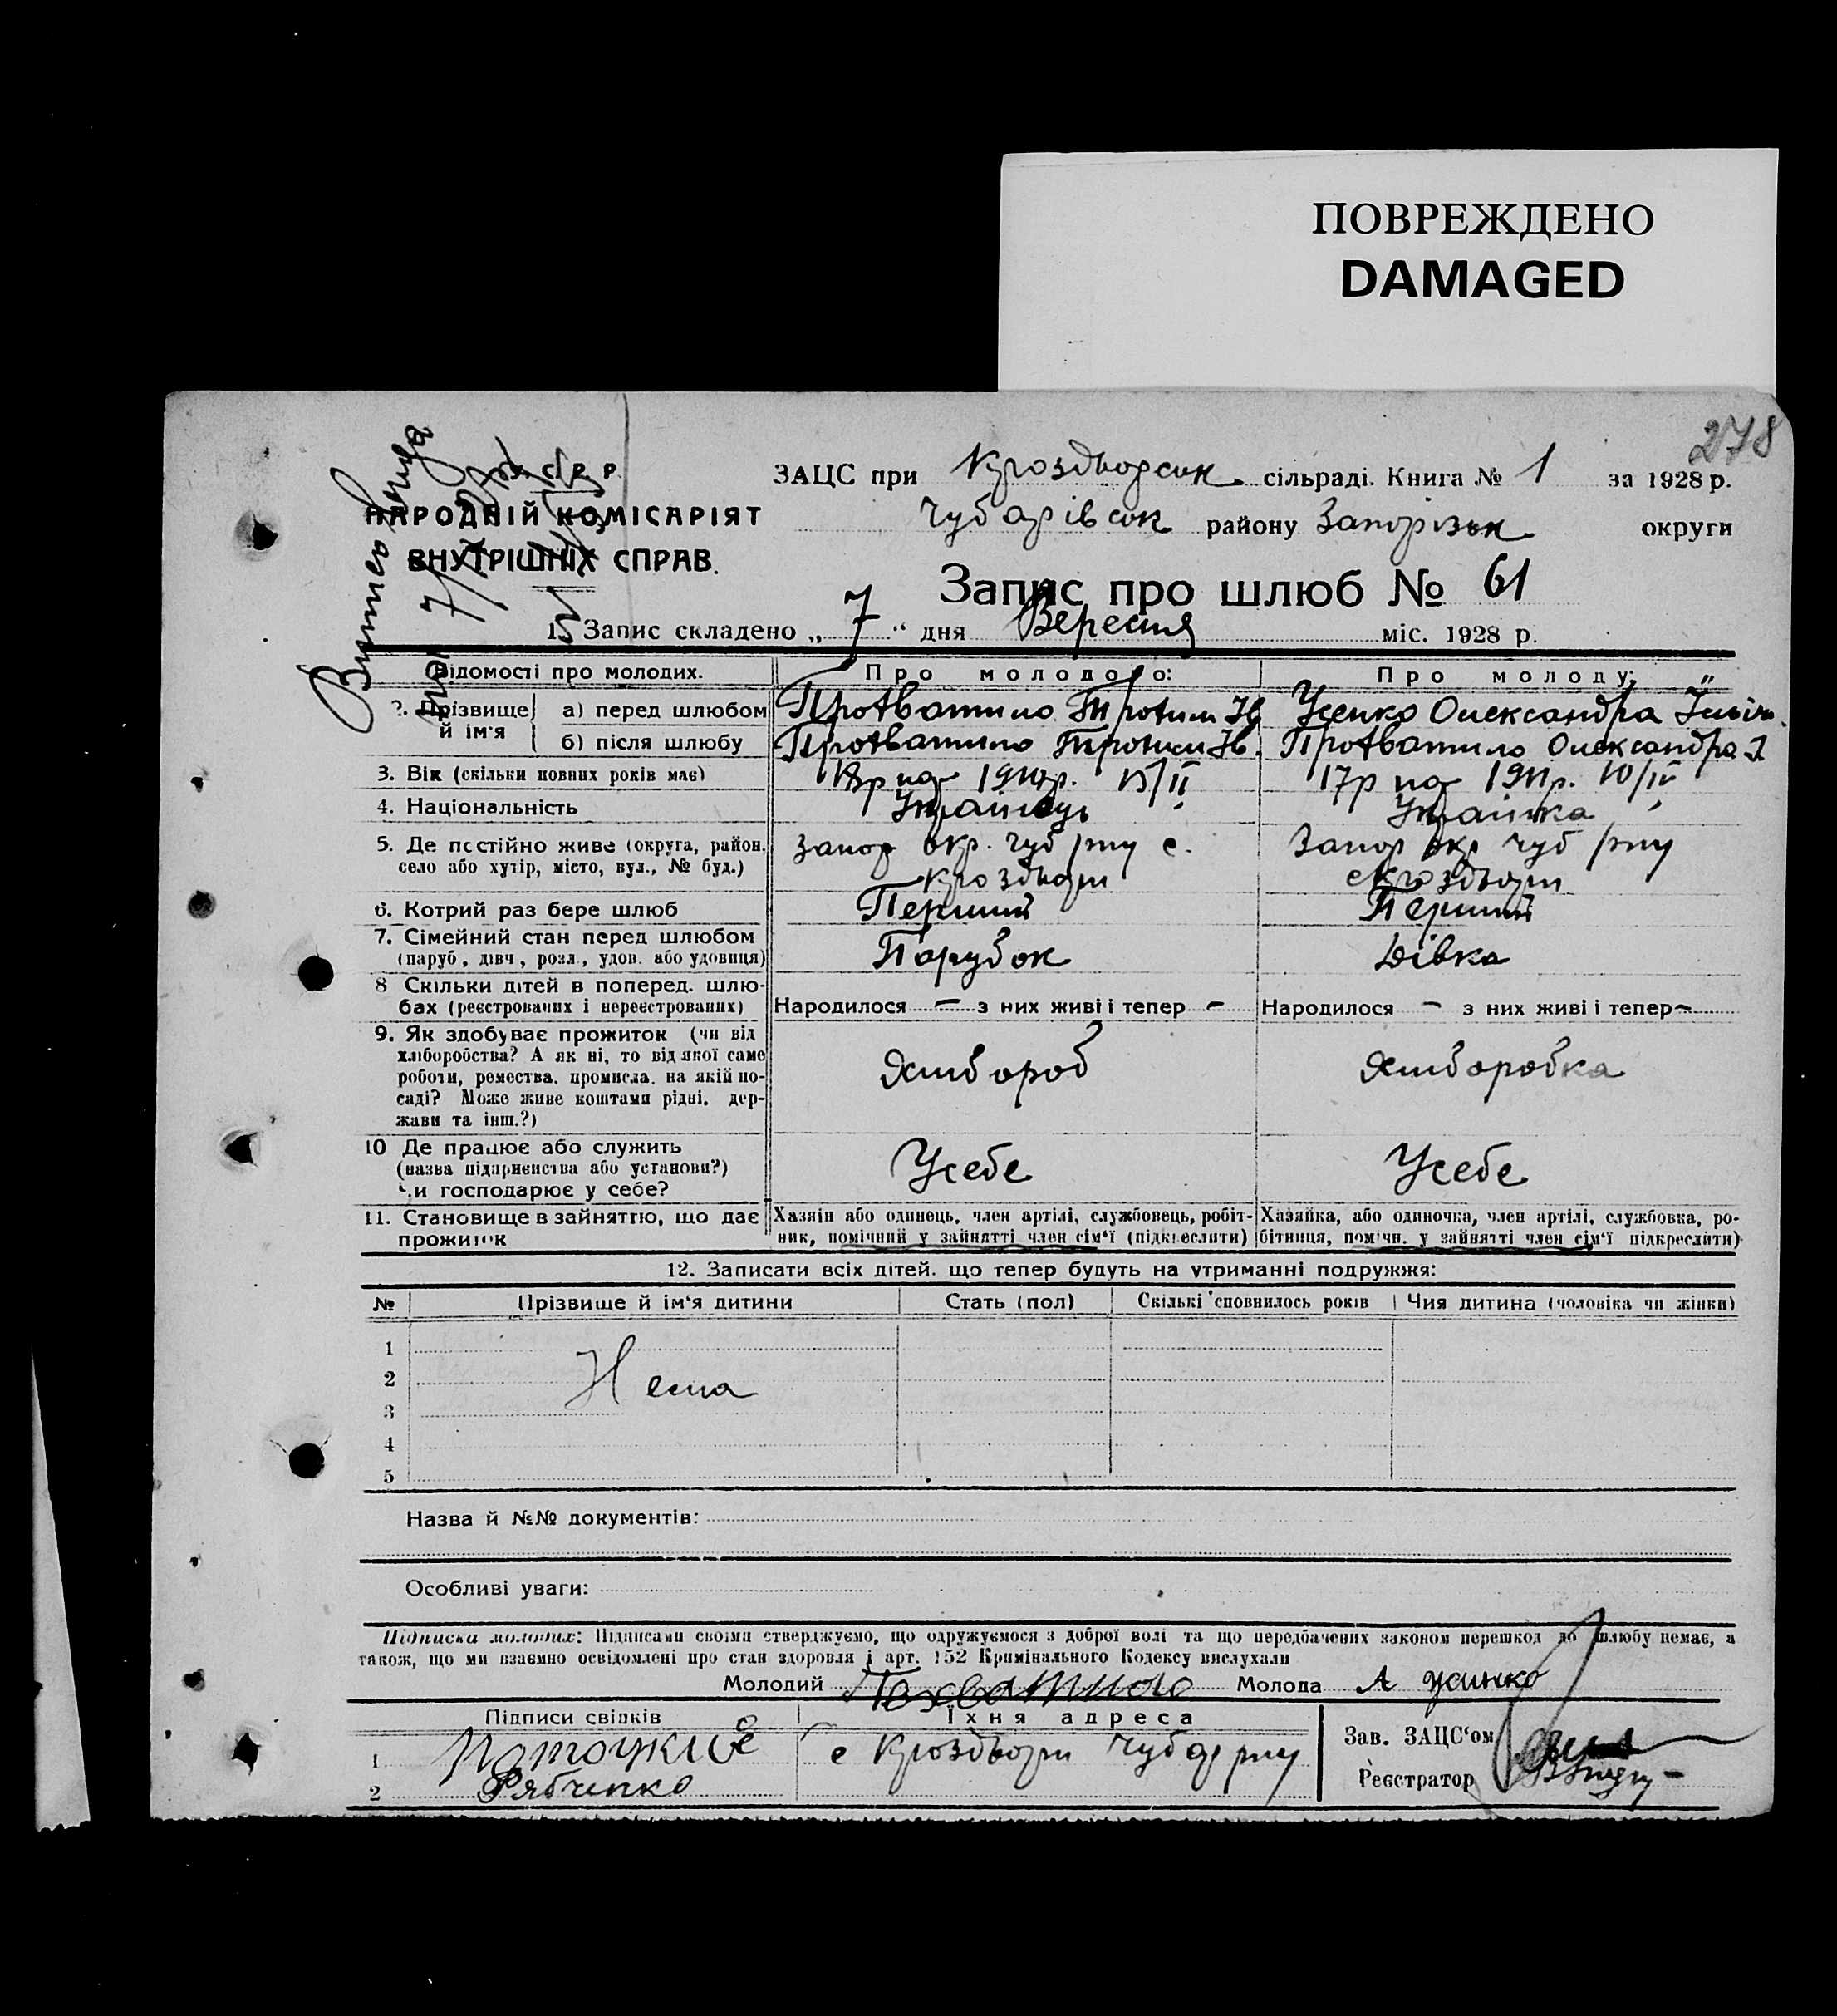 ПОВРЕЖДЕНО
DAMAGED
278
С. Р. Р.
НАРОДНІЙ КОМІСАРІЯТ
ВНУТРІШНІХ СПРАВ.
ЗАЦС при сільраді. Книга № 1 за 1928 р.
Чубарівськ району Запорізьк округи
Запис про шлюб № 61
1. Запис складено „ 7 “ дня Вересня міс. 1928 р.
Відомості про молодих. Про молодого: Про молоду:
2. Прізвище й ім'я
а) перед шлюбом Усенко Олександра
б) після шлюбу Олександра І
3. Вік (скільки повних років має) 18р 1910р. 17р 1911р. 10/IV
4. Національність Українець Українка
5. Де постійно живе (округа, район. Запор окр. Чуб р-ну с. Запор окр Чуб р-ну
село або хутір, місто, вул., № буд.)
6. Котрий раз бере шлюб Перший Перший
7. Сімейний стан перед шлюбом Парубок Дівка
(паруб, дівч, розл., удов. або удовиця)
8 Скільки дітей в поперед. шлю-
бах (реєстрованих і нереєстрованих) Народилося — з них живі і тепер — Народилося — з них живі і тепер —
9. Як здобуває прожиток (чи від
хліборобства? А як ні, то від якої саме Хлібороб Хлiборобка
роботи, ремества. промисла. на якій по-
саді? Може живе коштами рідні. дер-
жави та інш.?)
10 Де працює або служить
(назва підприємства або установи?) Усебе Усебе
чи господарює у себе?
11. Становище в зайняттю, що дає Хазяїн або одинець, член артілі, службовець, робіт- Хазяйка, або одиночка, член артілі, службовка, ро-
прожиток ник, помічний у зайнятті член сім'ї (підкреслити) бітниця, помічн. у зайнятті член сім'ї підкреслити)
12. Записати всіх дітей. що тепер будуть на утриманні подружжя:
№ Прізвище й ім'я дитини Стать (пол) Скількі сповнилось років Чия дитина (чоловіка чи жінки)
1
2 Нема
3
4
5
Назва й №№ документів:
Особливі уваги:
Підписка молодих: Підписами своіми стверджуємо, що одружуємося з доброї волі та що передбачених законом перешкод до шлюбу немає, а
також, що ми взаємно освідомлені про стан здоровля і арт. 152 Кримінального Кодексу вислухали
Молодий Похватило Молода А
Підписи свідків Їхня адреса
1 Зав. ЗАЦС'ом
2 Рябченко Реєстратор